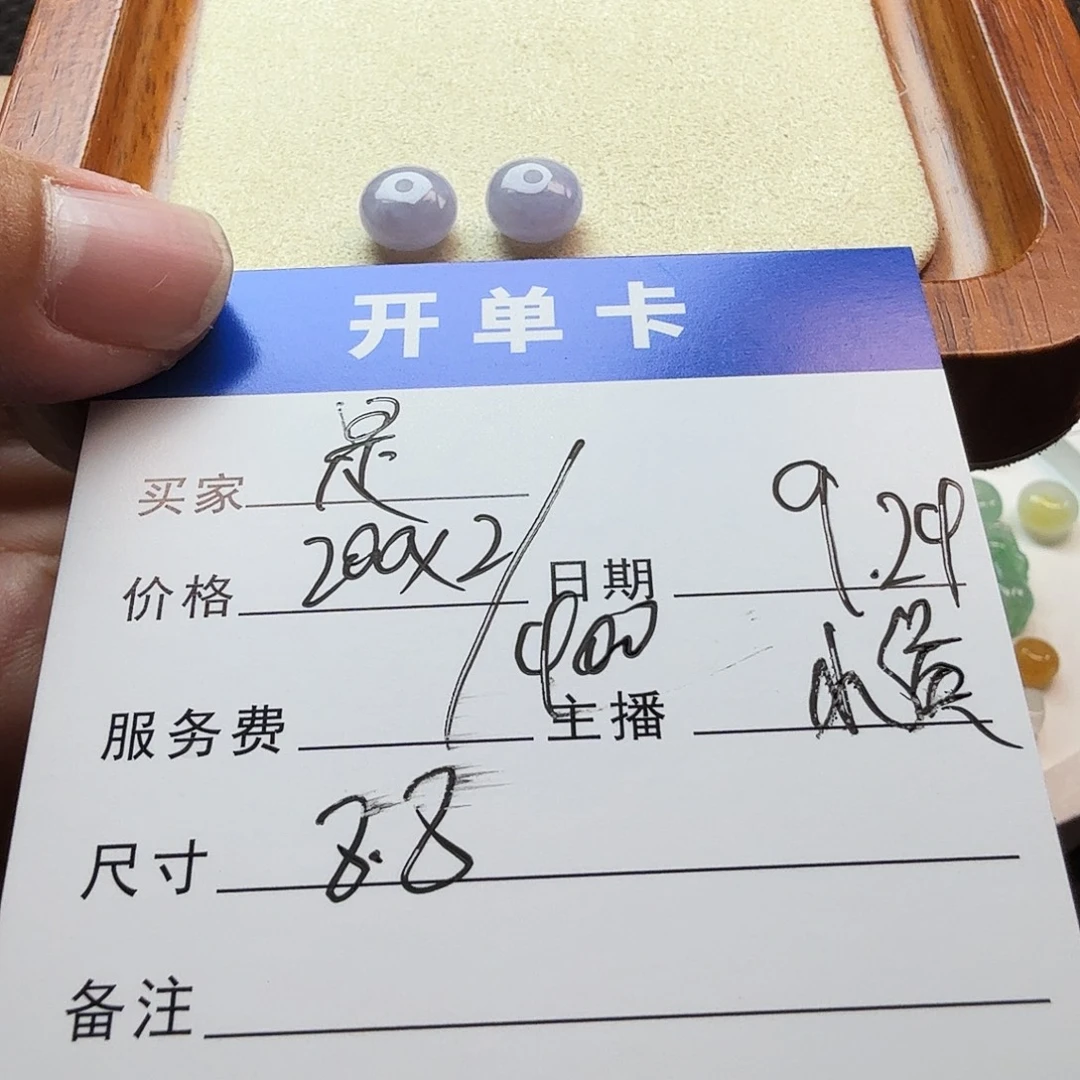 开单卡
买家 是
价格 200×2/400 日期 9.24
服务费 主播
尺寸 8.8
备注